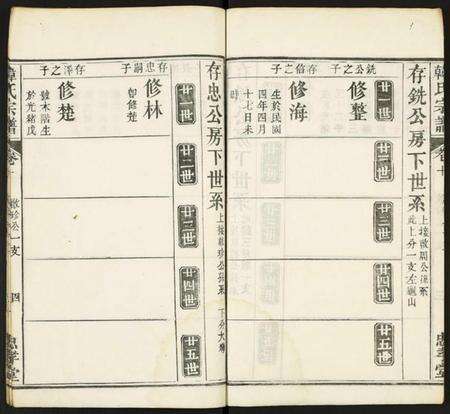 韓氏宗譜
卷十
忠孝堂
存銑公房下世系
上接啟周公後系
此上分一支左龜山
廿一世
廿二世
廿三世
廿四世
廿五世
銑公之子
修整
存信之子
修海
生於民國
四年四月
十七日未
時
存忠公房下世系
廿一世
廿二世
廿三世
廿四世
廿五世
存忠嗣子
修林
即修楚
存澤之子
修楚
韓氏宗譜
卷十
公一支
四
忠孝堂